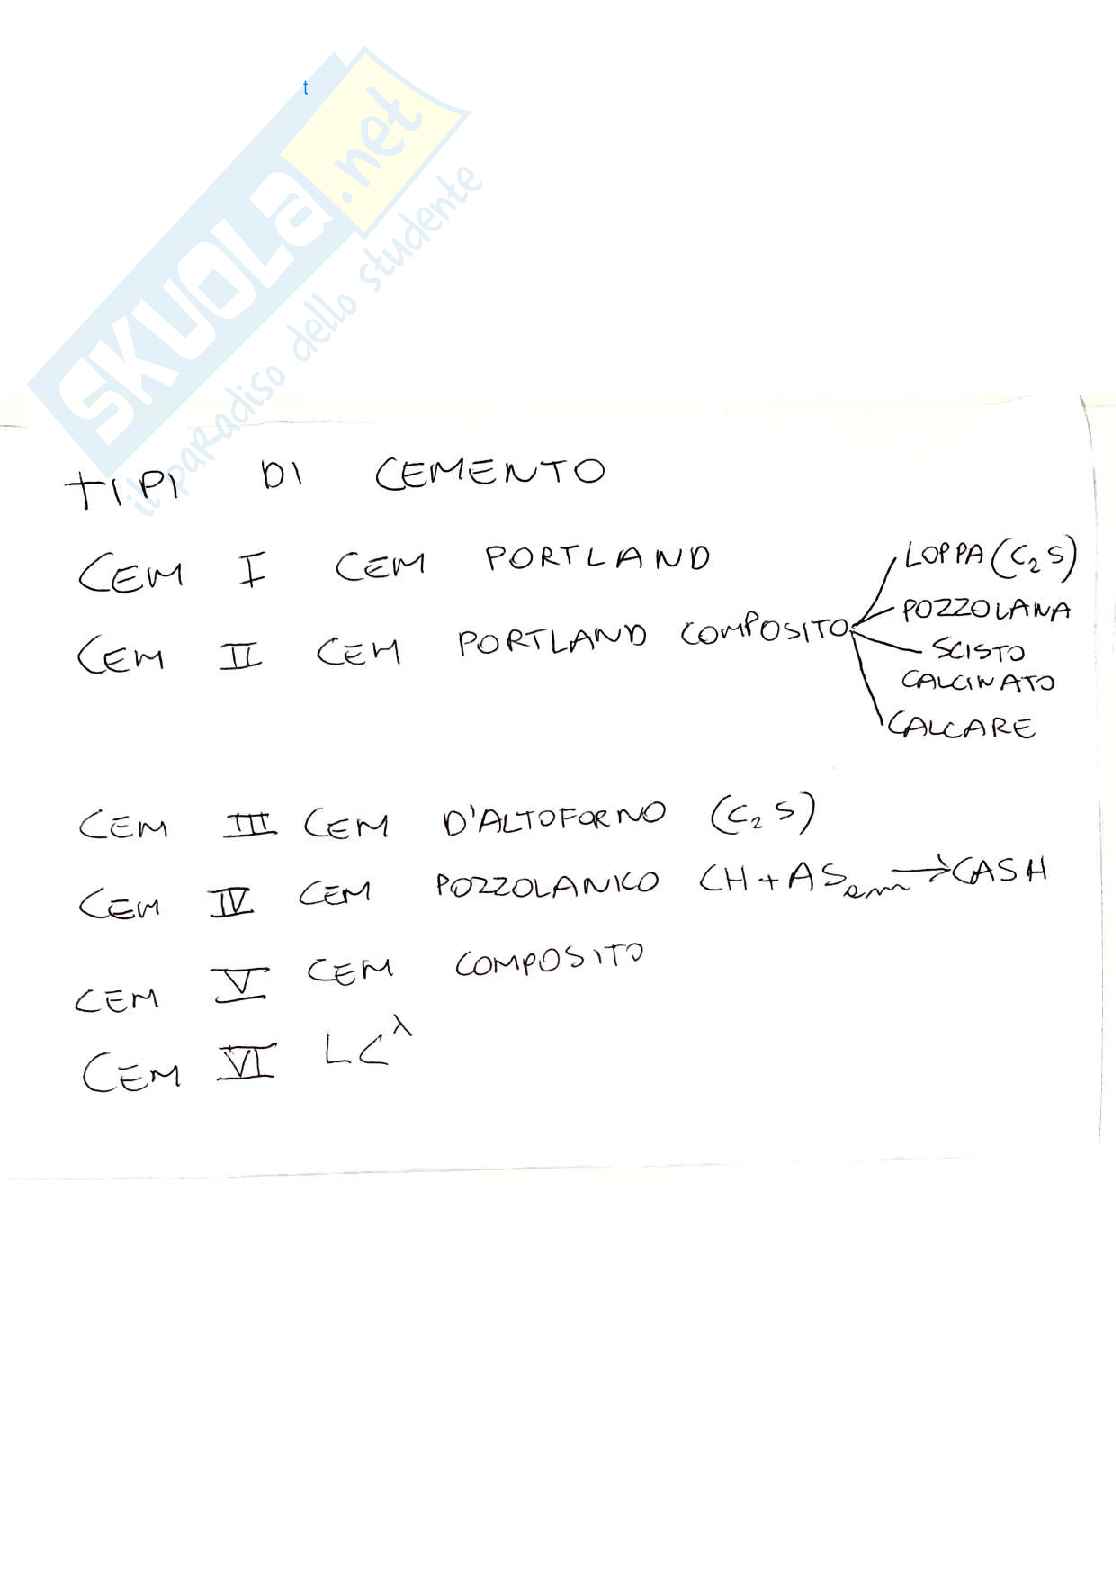 t
SKUOLA.net
il paradiso dello studente
TIPI DI CEMENTO
CEM I CEM PORTLAND
CEM II CEM PORTLAND COMPOSITO
LOPPA (C₂S)
POZZOLANA
SCISTO
CALCINATO
CALCARE
CEM III CEM D'ALTOFORNO (C₂S)
CEM IV CEM POZZOLANICO CH + AS → CASH
CEM V CEM COMPOSITO
CEM VI LC^λ